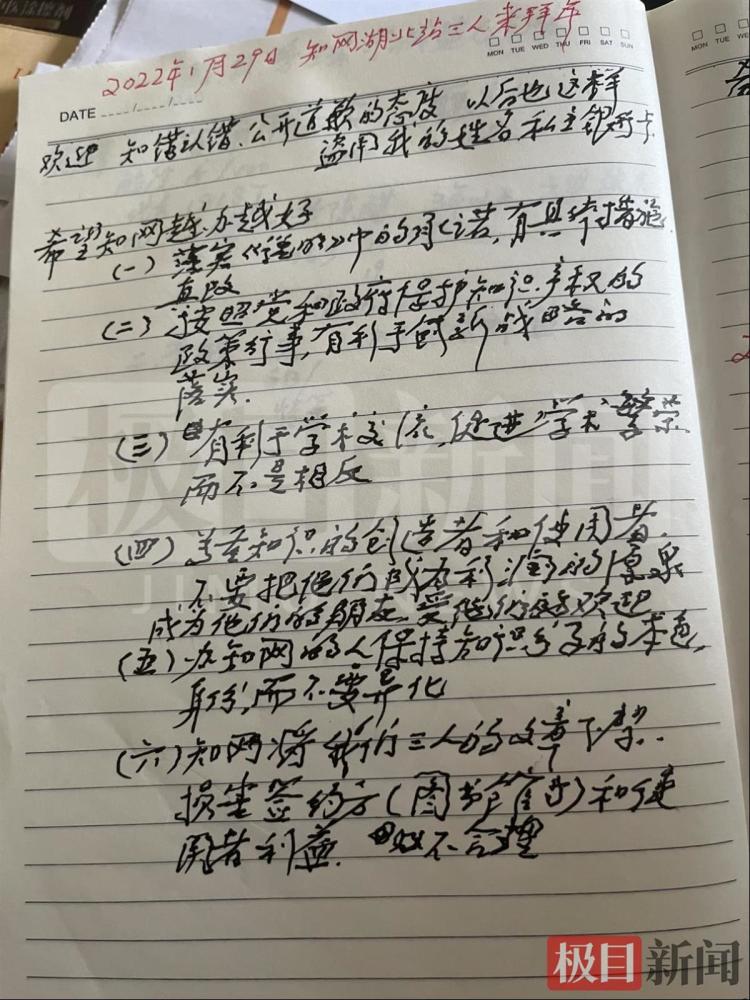 2022年1月29日 知网湖北站三人来拜年
MON TUE WED THU FRI SAT SUN
MON TUE
DATE ____/____/____
欢迎 知错认错、公开道歉的态度 以后也这样
盗用我的姓名, 私立银行卡
希望知网越办越好
(一) 落实《说明》中的承诺,有具体措施
直改
(二) 按照党和政府保护知识产权的
政策行事,有利于创新战略的
落实.
(三) 有利于学术交流,促进学术繁荣
而不是相反
(四) 尊重知识的创造者和使用者.
不要把他们成为利润的源泉
成为他们的朋友,受他们的欢迎
(五) 办知网的人保持知识分子的本色,
身份,而不要异化
(六) 知网将我们三人的文章下架..
损害签约方(图书馆)和使
用者利益. 不合理
极目新闻
极目新闻